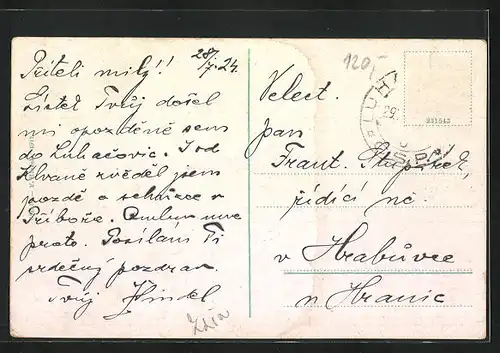 28/7. 24.
Příteli milý!!
Lístek Tvůj došel
mi opozděně sem
do Luhačovic. I od
zvěděl jsem
pozdě o schůzce v
Příboře. Omluv mne
proto. Posílám Ti
srdečný pozdrav
Tvůj Hindel
120,-
Velect.
pan
Frant.
řídící uč.
v Hrabůvce
u Hranic
231543